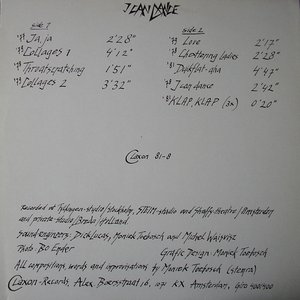 I CAN DANCE
side 1
Ja, ja 2'28"
Collages 1 4'12"
Throatscratching 1'51"
Collages 2 3'32"
side 2
Love 2'17"
Chattering ladies 2'28"
Darkflat-aha 4'47"
I can dance 2'42"
KLAP, KLAP (3x) 0'20"
Claxon 81-8
Recorded at Fylkingen-studio/Stockholm, STEIM-studio and Shaffy theatre/Amsterdam
and private-studio/Breda/Holland
Sound engineers: Dick Lucas, Moniek Toebosch and Michel Waisvisz
Photo: Bo Ender
Grafic Design: Moniek Toebosch
All compositions, words and improvisations by Moniek Toebosch (stemra)
Claxon-Records, Alex Boersstraat 16, 1071 KX Amsterdam